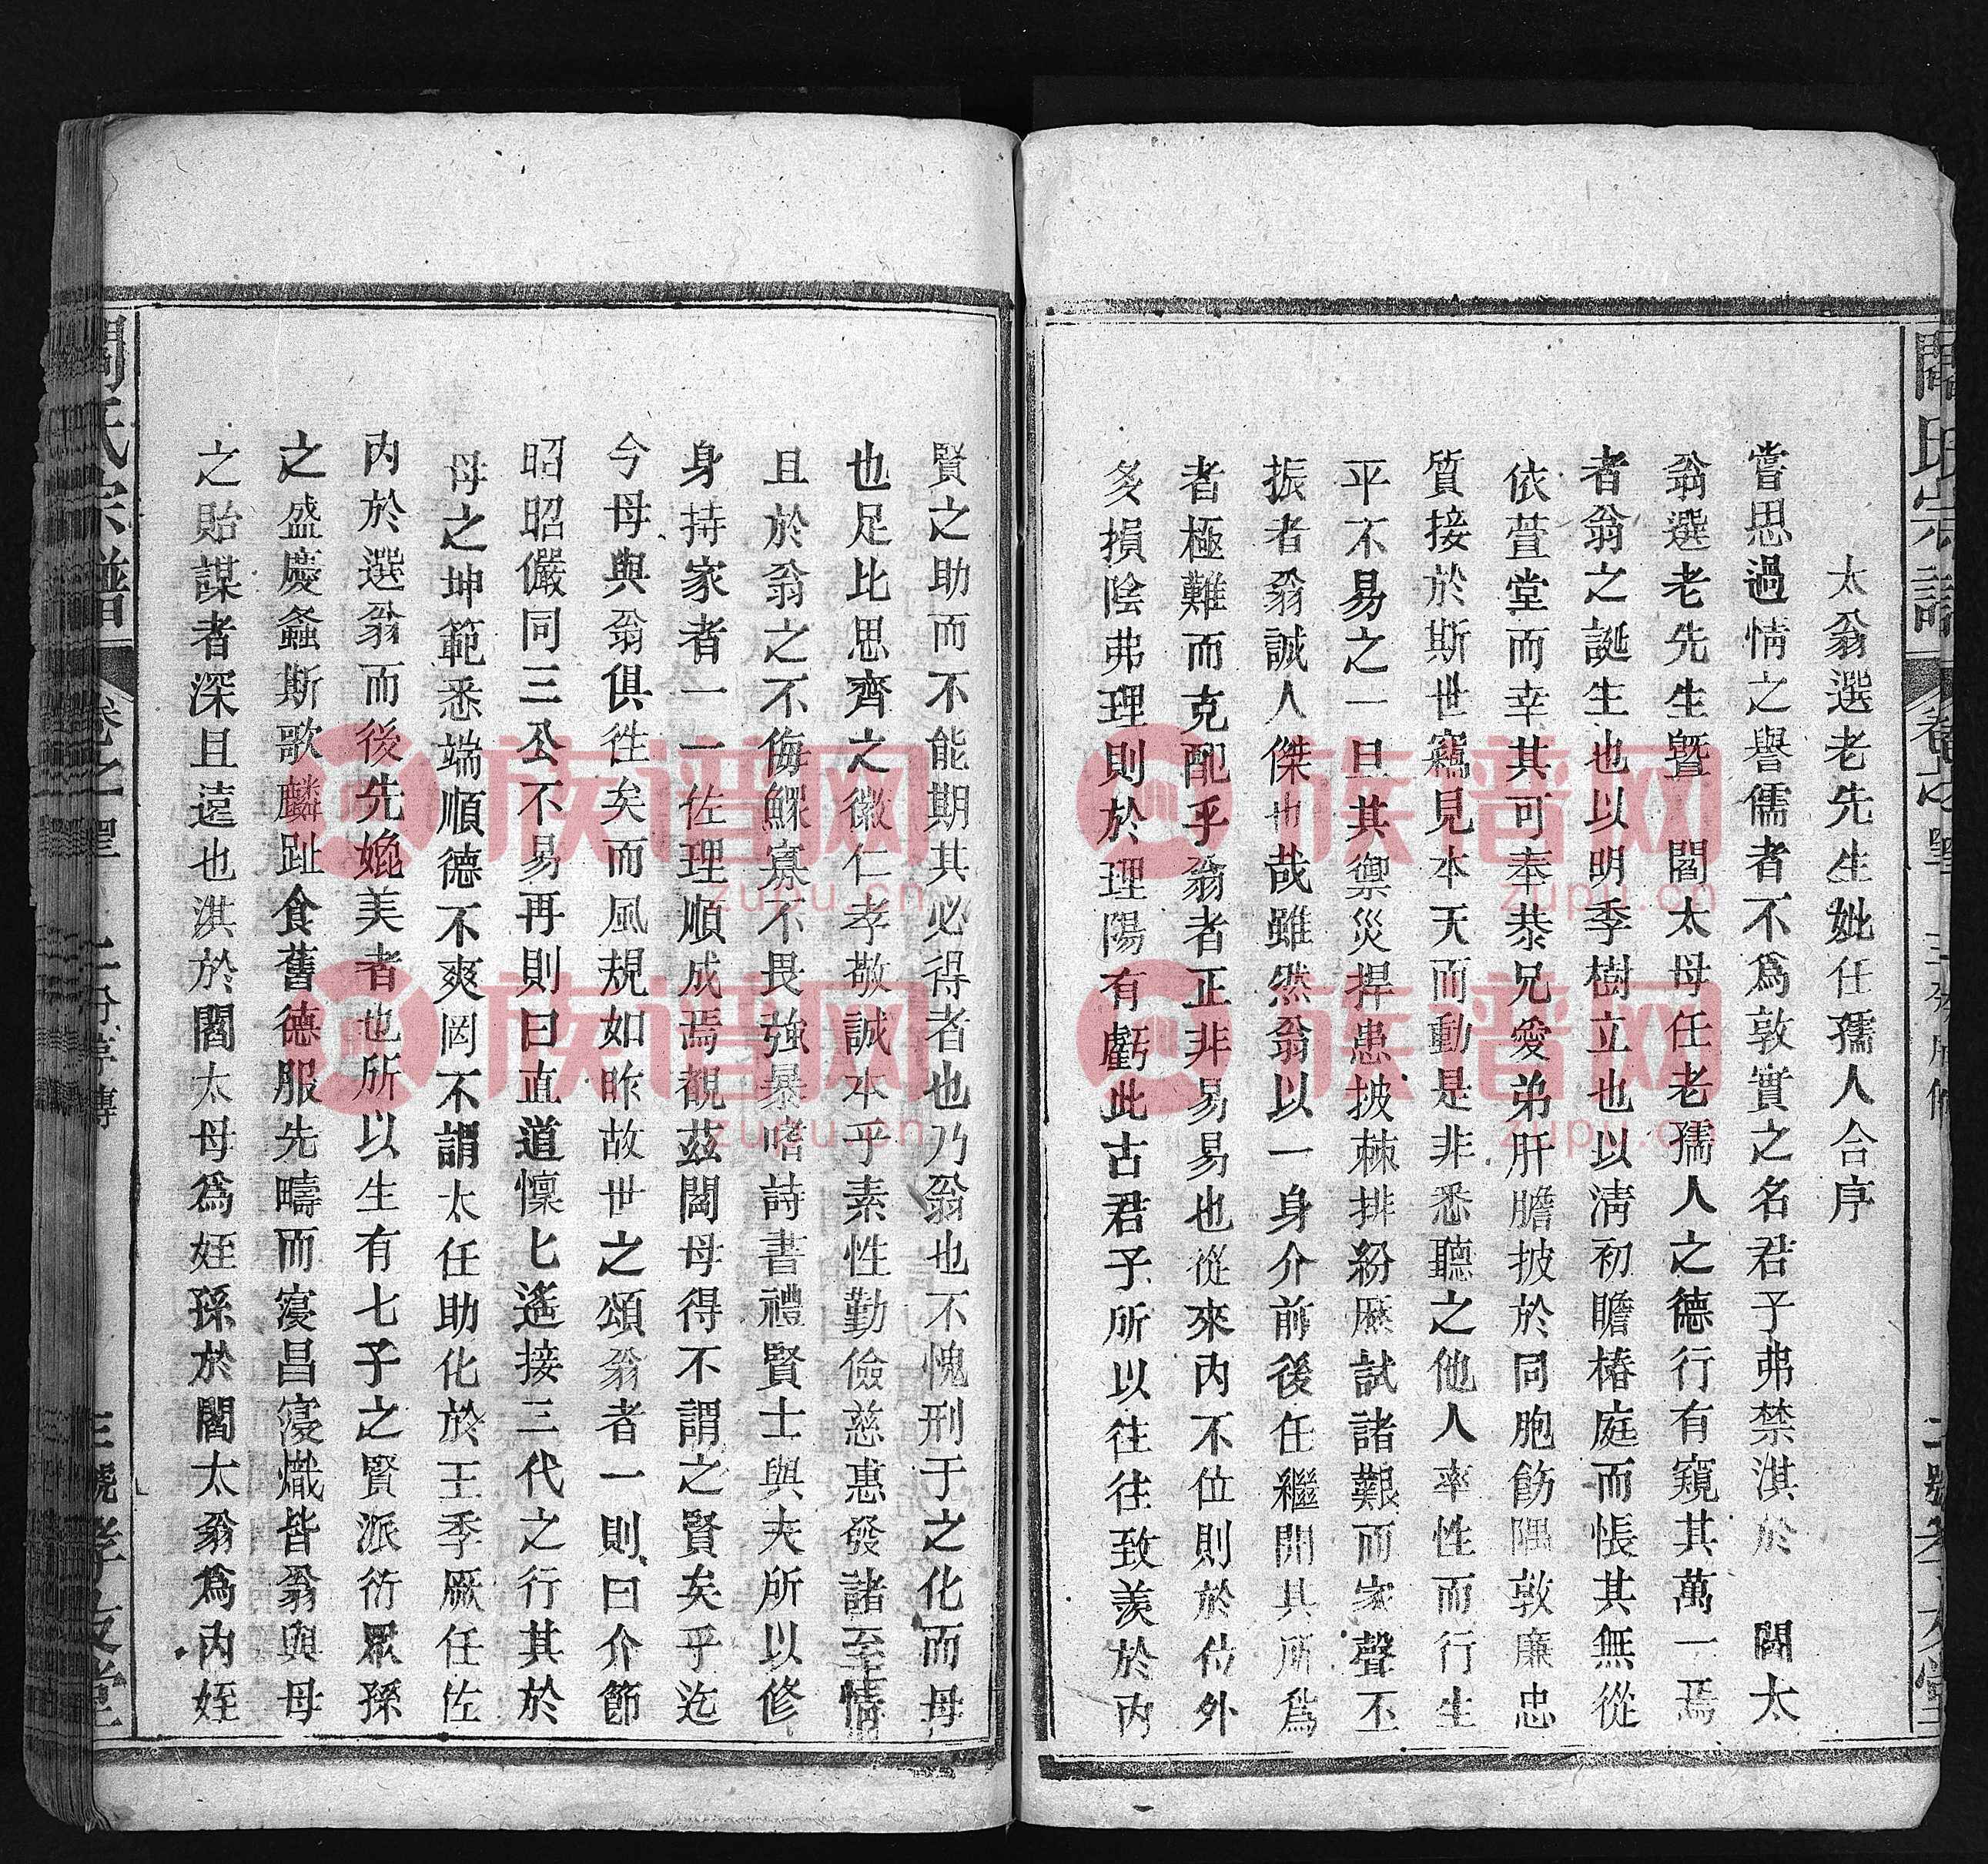 太翁選老先生妣任孺人合序
嘗思過情之譽儒者不爲敦實之名君子弗禁淇於 閻太
翁選老先生曁 閻太母任老孺人之德行有窺其萬一焉
者翁之誕生也以明季樹立也以淸初瞻椿庭而悵其無從
依萱堂而幸其可奉恭兄愛弟肝膽披於同胞飭隅敦廉忠
質接於斯世竊見本天而動是非悉聽之他人率性而行生
平不易之一旦其禦災捍患披棘排紛歷試諸艱而家聲丕
振者翁誠人傑也哉雖然翁以一身介前後任繼開其所爲
者極難而克配乎翁者正非易易也從來內不位則於位外
多損陰弗理則於理陽有虧此古君子所以往往致羨於內
賢之助而不能期其必得者也乃翁也不愧刑于之化而母
也足比思齊之徽仁孝敬誠本乎素性勤儉慈惠發諸至情
且於翁之不侮鰥寡不畏強暴嗜詩書禮賢士與夫所以修
身持家者一一佐理順成焉觀茲閫母得不謂之賢矣乎迄
今母與翁俱徃矣而風規如昨故世之頌翁者一則曰介節
昭昭儼同三公不易再則曰直道懍匕遙接三代之行其於
母之坤範悉端順德不爽罔不謂太任助化於王季厥任佐
內於選翁而後先媲美者也所以生有七子之賢派衍眾孫
之盛慶螽斯歌麟趾食舊德服先疇而寖昌寖熾皆翁與母
之貽謀者深且遠也淇於閻太母爲姪孫於閻太翁爲內姪
閻氏宗譜
卷之
二號
孝友堂
閻氏宗譜
卷之
三號
孝友堂
族谱网
zupu.cn
族谱网
zupu.cn
族谱网
zupu.cn
族谱网
zupu.cn